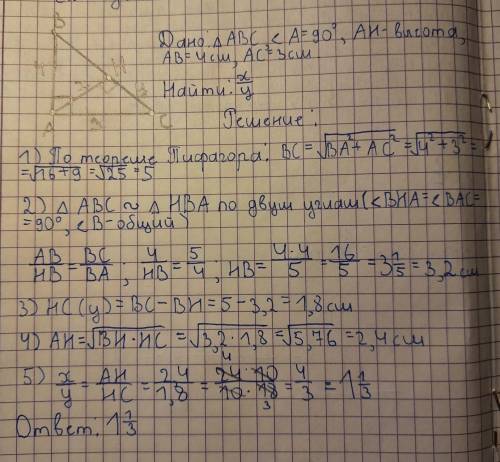 B
Дано: △ABC, <A=90°, AH-высота,
AB=4см, AC=3см
4
H
Найти: x/y
3
A
3
C
Решение:
1) По теореме Пифагора: BC=√BA²+AC²=√4²+3²=
=√16+9=√25=5
2) △ABC ~ △HBA по двум углам(<BHA=<BAC=
=90°, <B-общий)
AB/HB=BC/BA; 4/HB=5/4; HB=4·4/5=16/5=3 1/5=3,2см
3) HC(y)=BC-BH=5-3,2=1,8см
4) AH=√BH·HC=√3,2·1,8=√5,76=2,4см
5) x/y=AH/HC=24/1,8=24·10/10·18=4/3=1 1/3
4
3
Ответ: 1 1/3